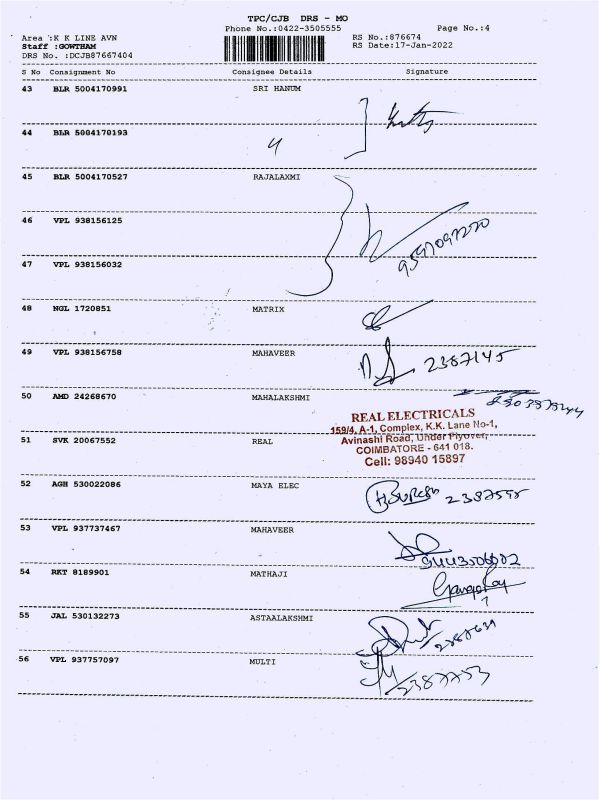 TPC/CJB DRS - MO
Phone No.:0422-3505555
Page No.:4
Area :K K LINE AVN
RS No.:876674
Staff :GOWTHAM
RS Date:17-Jan-2022
DRS No. :DCJB87667404
S No Consignment No Consignee Details Signature
43 BLR 5004170991 SRI HANUM
44 BLR 5004170193
4
45 BLR 5004170527 RAJALAXMI
46 VPL 938156125
47 VPL 938156032
48 NGL 1720851 MATRIX
49 VPL 938156758 MAHAVEER
2387145
50 AMD 24268670 MAHALAKSHMI
REAL ELECTRICALS
159/4, A-1, Complex, K.K. Lane No-1,
51 SVK 20067552 REAL
Avinashi Road, Under Flyover,
COIMBATORE - 641 018.
Cell: 98940 15897
52 AGH 530022086 MAYA ELEC
53 VPL 937737467 MAHAVEER
54 RKT 8189901 MATHAJI
55 JAL 530132273 ASTAALAKSHMI
56 VPL 937757097 MULTI